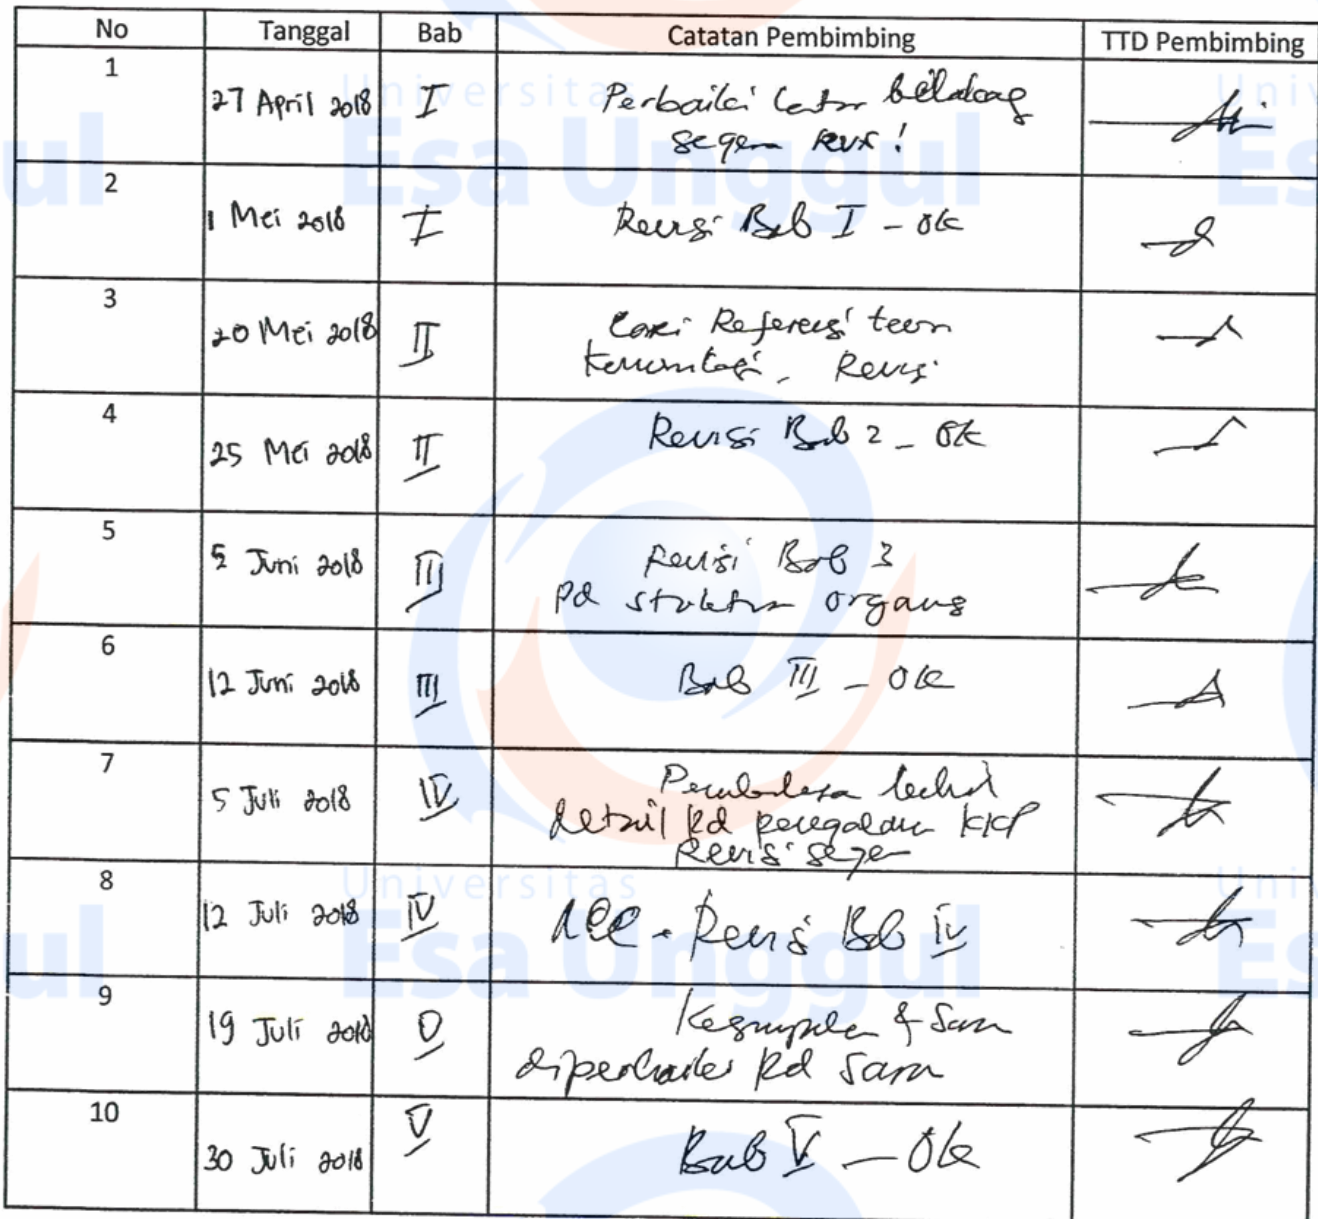 No Tanggal Bab Catatan Pembimbing TTD Pembimbing
1
27 April 2018 I Perbaiki latar belakang
segera revisi!
2
1 Mei 2018 I Revisi Bab I - ok
3
20 Mei 2018 II Cari Referensi teori
komunikasi, Revisi
4
25 Mei 2018 II Revisi Bab 2 - Ok
5
5 Juni 2018 III Revisi Bab 3
pd struktur organisasi
6
12 Juni 2018 III Bab III - Ok
7
5 Juli 2018 IV Pembahasan lebih
detail pd KKP
Revisi segera
8
12 Juli 2018 IV ACC - Revisi Bab IV
9
19 Juli 2018 V Kesimpulan & Saran
diperbaiki pd Saran
10
30 Juli 2018 V Bab V - Ok
Universitas
Esa Unggul
Universitas
Esa Unggul